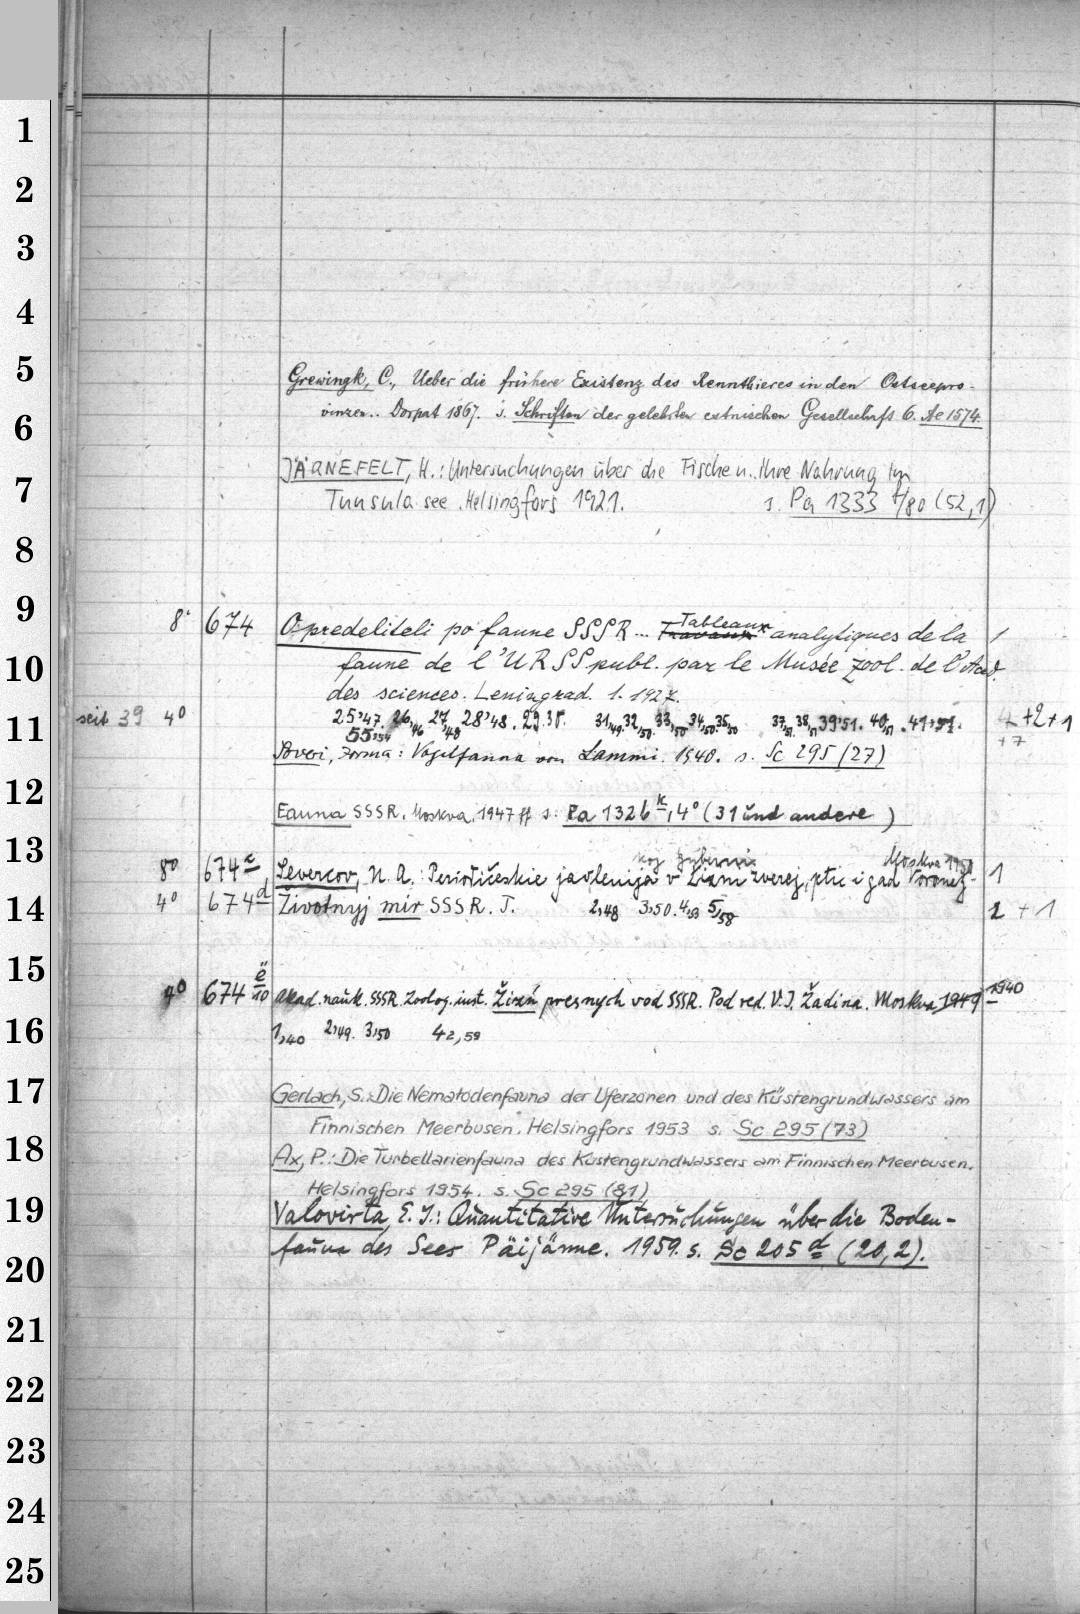 1
2
3
4
5
Grewingk, C., Ueber die frühere Existenz des Rennthieres in den Ostseepro-
vinzen.. Dorpat 1867. s. Schriften der gelehrten estnischen Gesellschaft 6. Ae 1574.
6
JÄRNEFELT, H.: Untersuchungen über die Fische u. Ihre Nahrung im
7
Tuusula see. Helsingfors 1921. s. Pa 1333 f/80 (52,1)
8
9
8° 674 Opredeliteli po faune SSSR... Travaux Tableaux analytiques de la 1
10
faune de l'URSS publ. par le Musée zool. de l'Acad.
des sciences. Leningrad. 1. 1927.
11
seit 39 4° 25,47. 26,46 27,48 28,48. 29. 31,49. 32,50. 33,50 34,50. 35,50 37,51. 38,51 39,51. 40,51. 41,51. +2+1
55,54 +7
Soveri, Jorma: Vogelfauna von Lammi. 1940. s. Sc 295 (27)
12
Fauna SSSR. Moskva, 1947 ff s: Pa 1326 k, 4° (31 und andere)
13
8° 674 c Severcov, N. A.: Periodičeskie javlenija v žizni zverej, ptic i gad Voronež- 1
koj gubernii Moskva 1950
14
4° 674 d Životnyj mir SSSR. T. 2,48 3,50. 4,53 5,58 1 + 1
15
4° 674 e/10 Akad. nauk. SSSR. Zoolog. inst. Žizń presnych vod SSSR. Pod red. V. I. Žadina. Moskva, 1949 1940
16
1,40 2,49. 3,50 42,59
17
Gerlach, S.: Die Nematodenfauna der Uferzonen und des Küstengrundwassers am
Finnischen Meerbusen. Helsingfors 1953 s. Sc 295 (73)
18
Ax, P.: Die Turbellarienfauna des Küstengrundwassers am Finnischen Meerbusen.
Helsingfors 1954. s. Sc 295 (81)
19
Valovirta, E. J.: Quantitative Untersuchungen über die Boden-
fauna des Sees Päijänne. 1959. s. Sc 205 d (20,2).
20
21
22
23
24
25